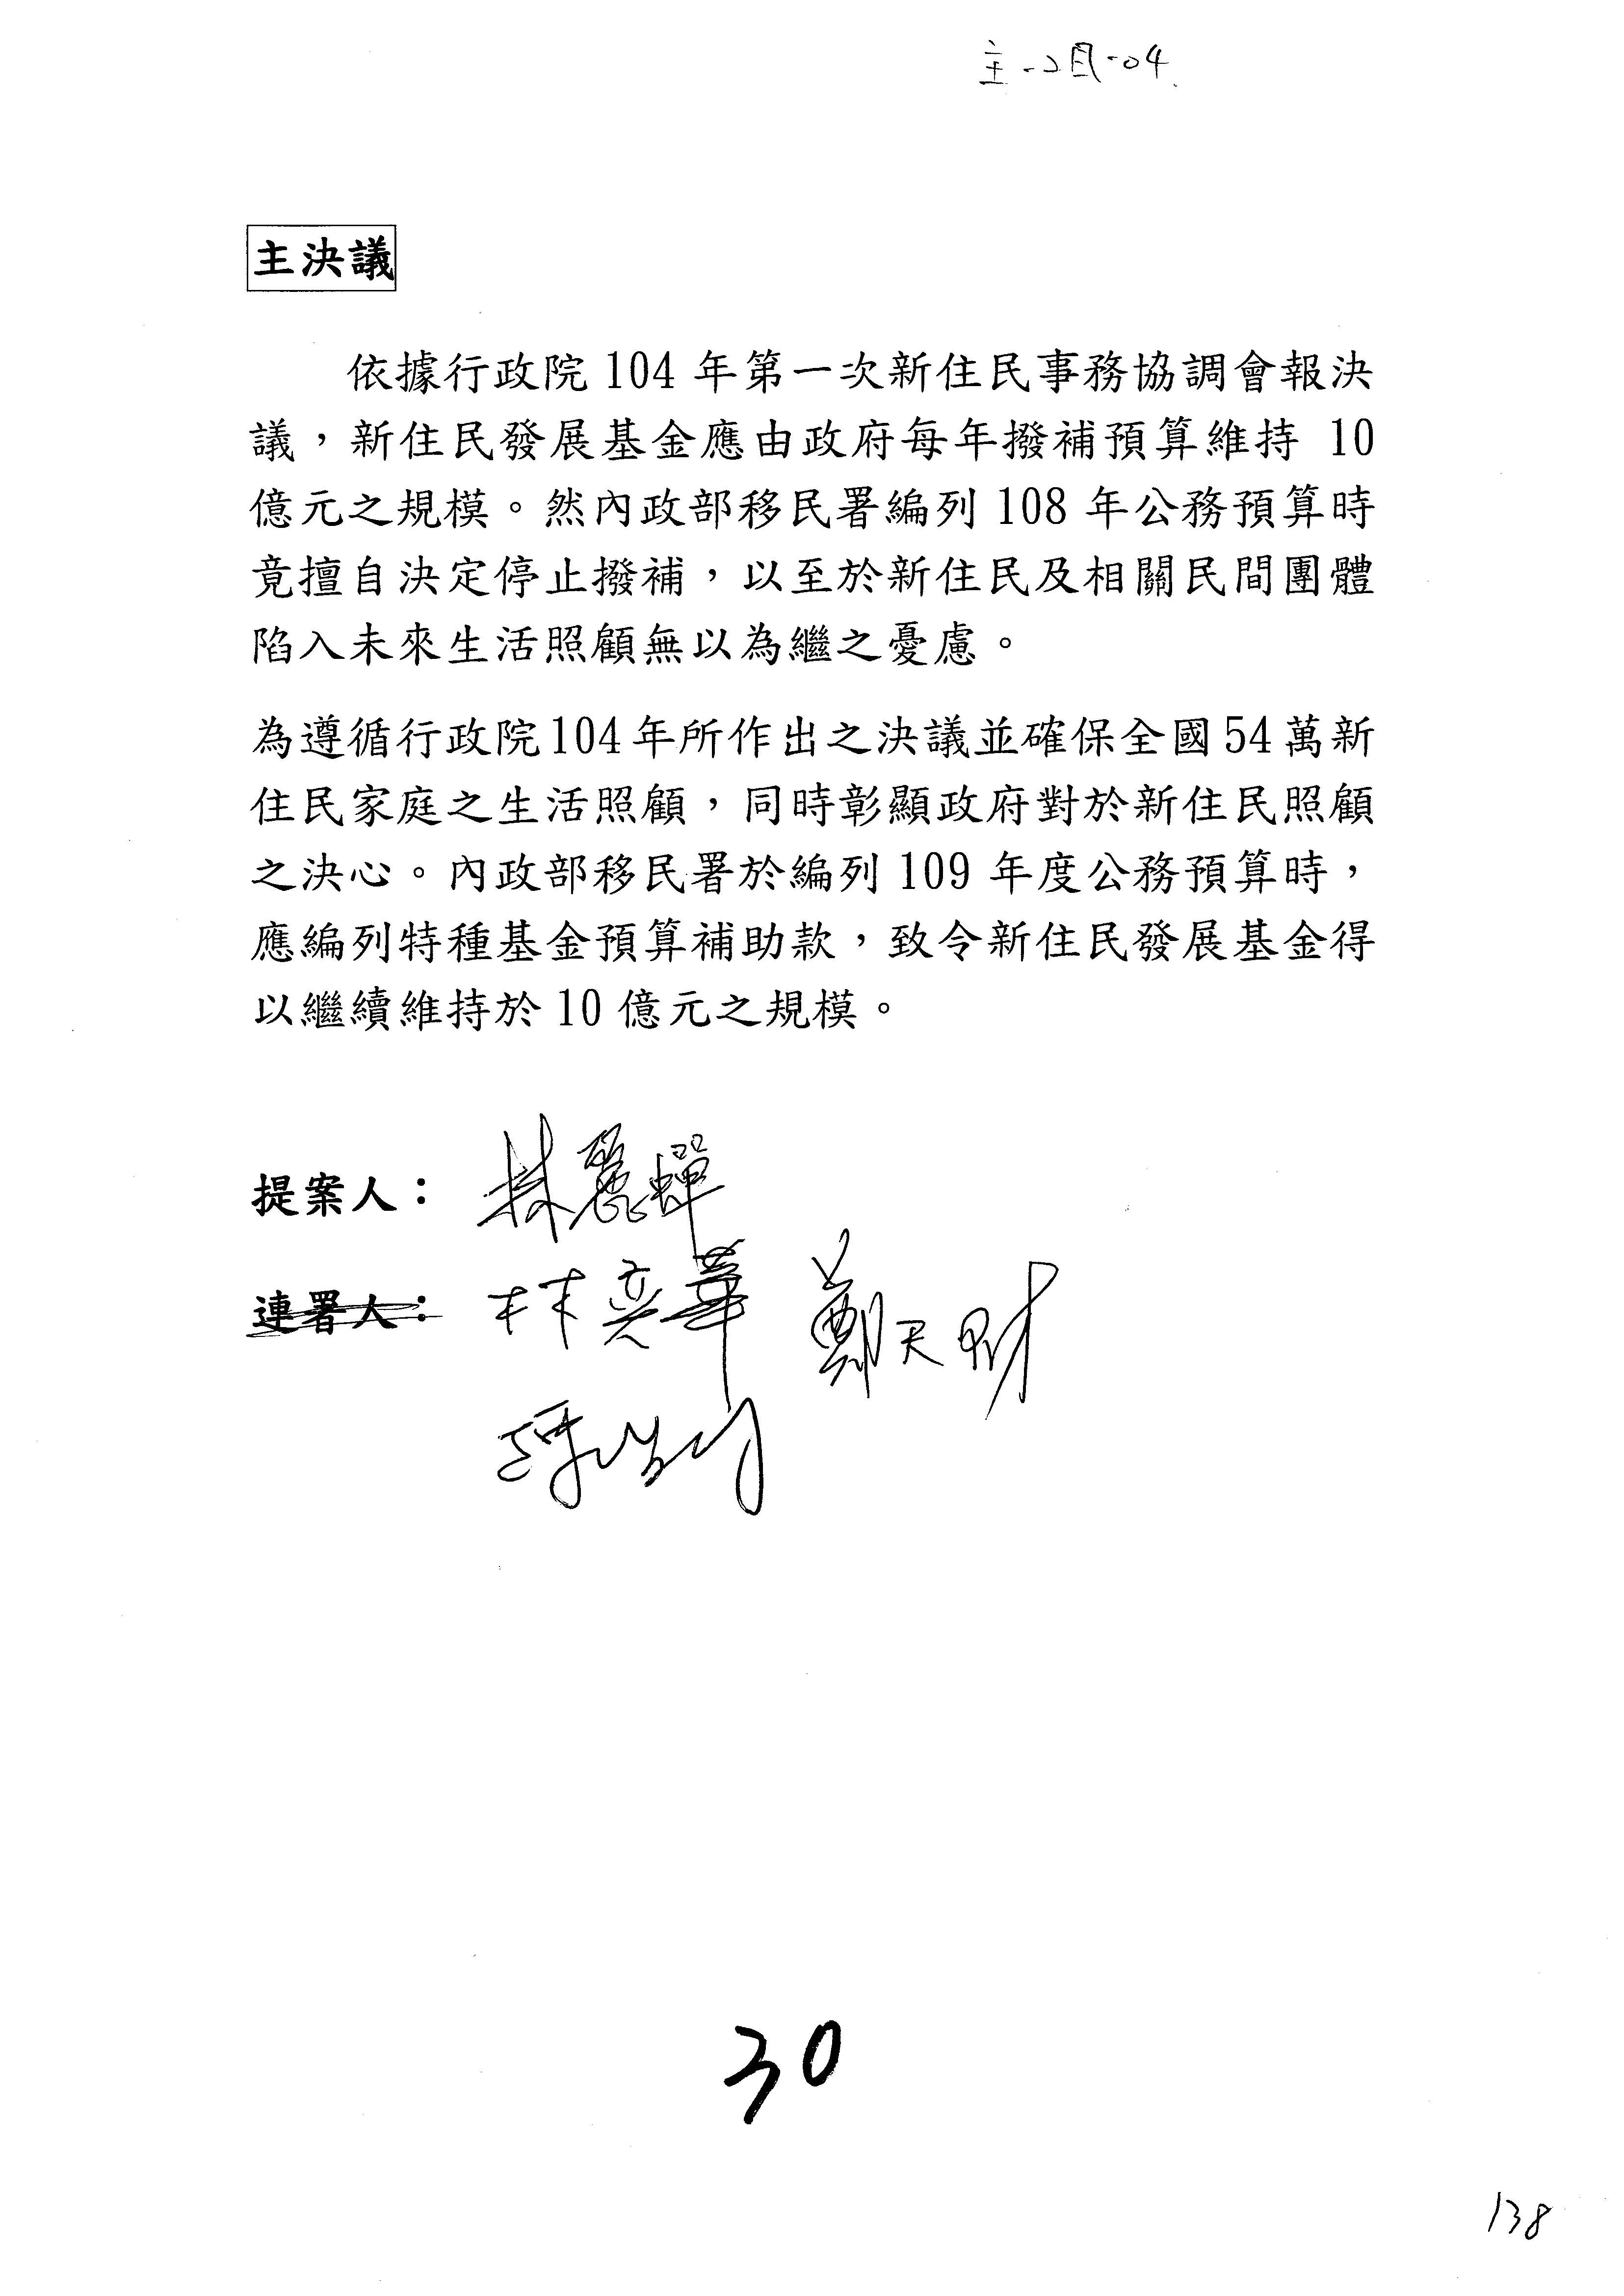 主決議
依據行政院 104 年第一次新住民事務協調會報決
議，新住民發展基金應由政府每年撥補預算維持 10
億元之規模。然內政部移民署編列 108 年公務預算時
竟擅自決定停止撥補，以至於新住民及相關民間團體
陷入未來生活照顧無以為繼之憂慮。
為遵循行政院104年所作出之決議並確保全國54萬新
住民家庭之生活照顧，同時彰顯政府對於新住民照顧
之決心。內政部移民署於編列 109 年度公務預算時，
應編列特種基金預算補助款，致令新住民發展基金得
以繼續維持於 10 億元之規模。
提案人：林麗蟬
連署人：林奕華 鄭天財
30
138